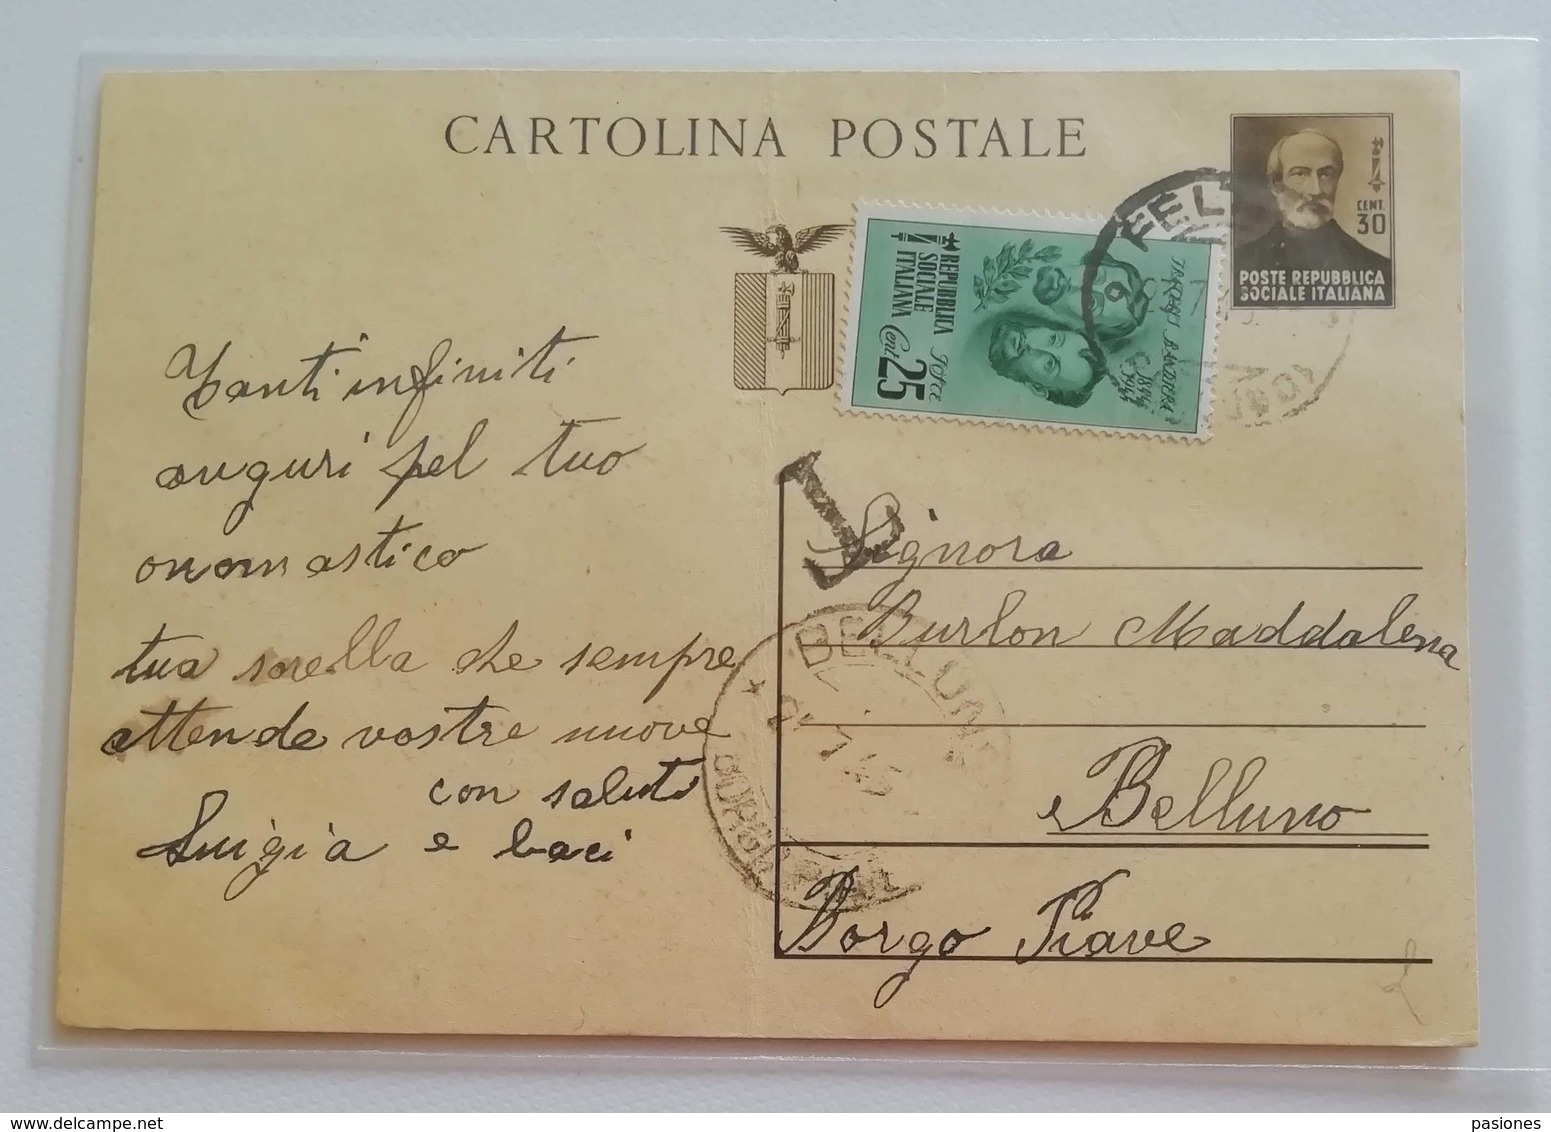 CARTOLINA POSTALE
CENT.
30
POSTE REPUBBLICA
SOCIALE ITALIANA
REPUBBLICA
SOCIALE
ITALIANA
Poste
Cent. 25
BANDIERA
1844
1944
FELT
Tanti infiniti
auguri pel tuo
onomastico
tua sorella che sempre
attende vostre nuove
con saluti
Luigia e baci
T
Signora
Burlon Maddalena
Belluno
Borgo Piave
BELLUNO
pasiones